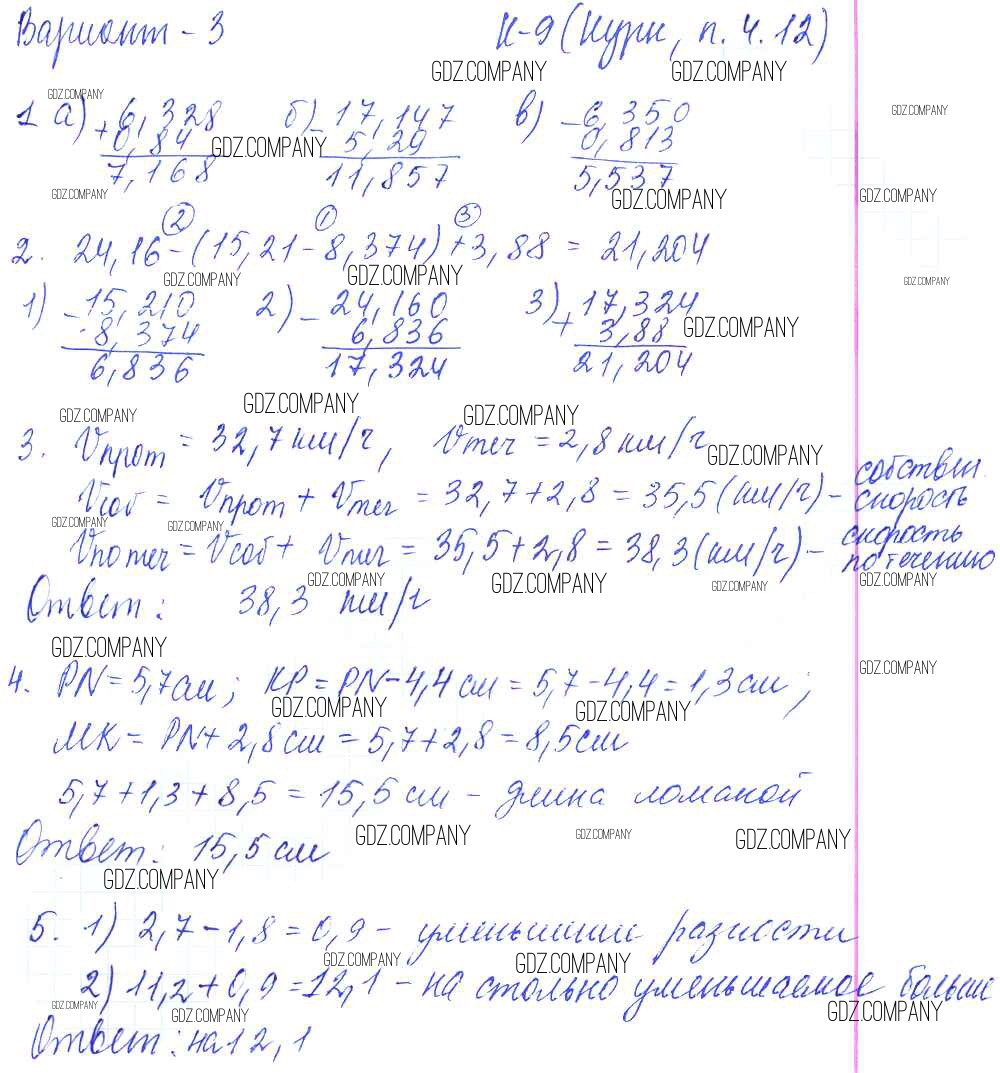 Вариант - 3 К-9 (Кури, п. 4.12)
GDZ.COMPANY GDZ.COMPANY
GDZ.COMPANY
1 а) + 6,328 б) - 17,147 в) - 6,350 GDZ.COMPANY
0,84 GDZ.COMPANY 5,29 0,813
7,168 11,857 5,537
GDZ.COMPANY GDZ.COMPANY GDZ.COMPANY
2 1 3
2. 24,16 - (15,21 - 8,374) + 3,88 = 21,204
GDZ.COMPANY GDZ.COMPANY GDZ.COMPANY
1) - 15,210 2) - 24,160 3) + 17,324
8,374 6,836 3,88 GDZ.COMPANY
6,836 17,324 21,204
GDZ.COMPANY GDZ.COMPANY GDZ.COMPANY
3. Vпрот = 32,7 км/ч, Vтеч = 2,8 км/ч GDZ.COMPANY
Vсоб = Vпрот + Vтеч = 32,7 + 2,8 = 35,5 (км/ч) - собствен. скорость
GDZ.COMPANY GDZ.COMPANY
Vпо теч = Vсоб + Vтеч = 35,5 + 2,8 = 38,3 (км/ч) - скорость по течению
GDZ.COMPANY GDZ.COMPANY GDZ.COMPANY GDZ.COMPANY
Ответ: 38,3 км/ч
GDZ.COMPANY GDZ.COMPANY
4. PN = 5,7 см; KP = PN - 4,4 см = 5,7 - 4,4 = 1,3 см;
GDZ.COMPANY GDZ.COMPANY
МК = PN + 2,8 см = 5,7 + 2,8 = 8,5 см
5,7 + 1,3 + 8,5 = 15,5 см - длина ломаной
GDZ.COMPANY GDZ.COMPANY GDZ.COMPANY
Ответ: 15,5 см
GDZ.COMPANY
5. 1) 2,7 - 1,8 = 0,9 - уменьшение разности
GDZ.COMPANY GDZ.COMPANY
2) 11,2 + 0,9 = 12,1 - на столько уменьшаемое больше
GDZ.COMPANY GDZ.COMPANY GDZ.COMPANY
Ответ: на 12,1